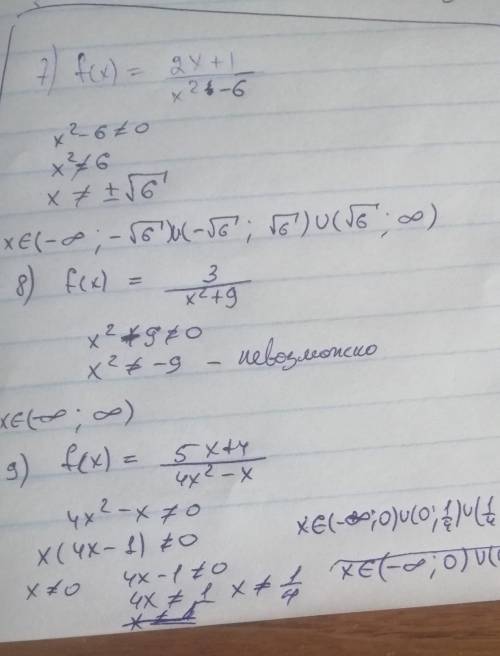 7) f(x) = (2x+1)/(x²-6)
x²-6≠0
x²≠6
x ≠ ±√6
x∈(-∞; -√6)∪(-√6; √6)∪(√6; ∞)
8) f(x) = 3/(x²+9)
x²+9≠0
x² ≠ -9 - невозможно
x∈(-∞; ∞)
9) f(x) = (5x+4)/(4x²-x)
4x²-x≠0
x(4x-1)≠0
x≠0 4x-1≠0
4x≠1 x≠1/4
x∈(-∞;0)∪(0;1/4)∪(1/4
x∈(-∞; 0)∪(